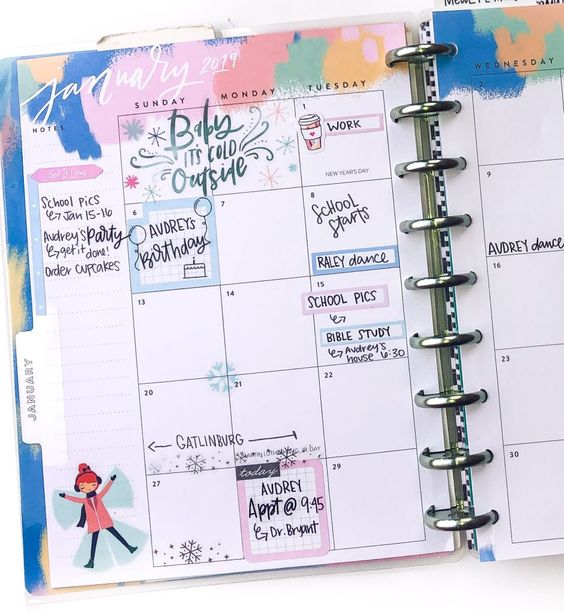 January 2019
SUNDAY MONDAY TUESDAY
WEDNESDAY
NOTES
Get It Done
SCHOOL PICS
Jan 15-16
AUDREY'S PARTY
get it done!
Order CUPCAKES
JANUARY
Baby
IT'S COLD
Outside
1
WORK
NEW YEAR'S DAY
6
AUDREY'S
Birthday
8
SCHOOL
Starts
RALEY dance
9
AUDREY dance
13
14
15
SCHOOL PICS
BIBLE STUDY
AUDREY'S
HOUSE 6:30
16
20
21
22
23
GATLINBURG
MARTIN LUTHER KING JR DAY
27
today
AUDREY
Appt @ 9:45
Dr. Bryant
29
30